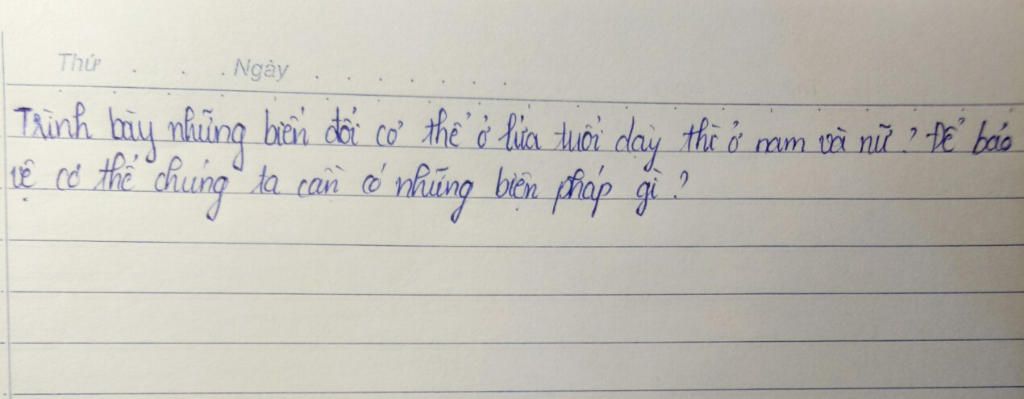 Thứ . . . . Ngày . . . . . . .
Trình bày những biến đổi cơ thể ở lứa tuổi dạy thì ở nam và nữ? Để bảo
vệ cơ thể chúng ta cần có những biện pháp gì?